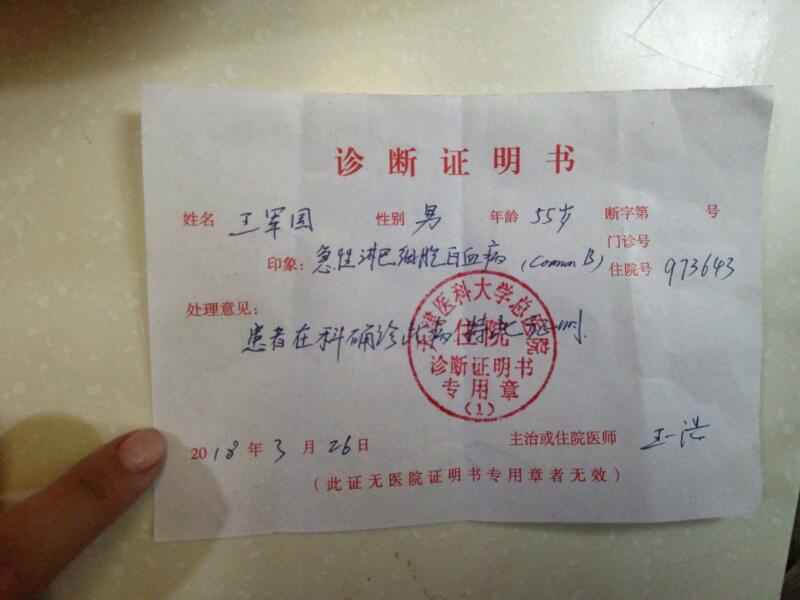 诊断证明书
姓名 王军国 性别 男 年龄 55岁 断字第 号
门诊号
印象: 急性淋巴细胞白血病 (Common B) 住院号 973643
处理意见:
患者在科确诊此病 特此证明.
天津医科大学总医院
住院
诊断证明书
专用章
(1)
2018年3月26日 主治或住院医师 王一浩
(此证无医院证明书专用章者无效)